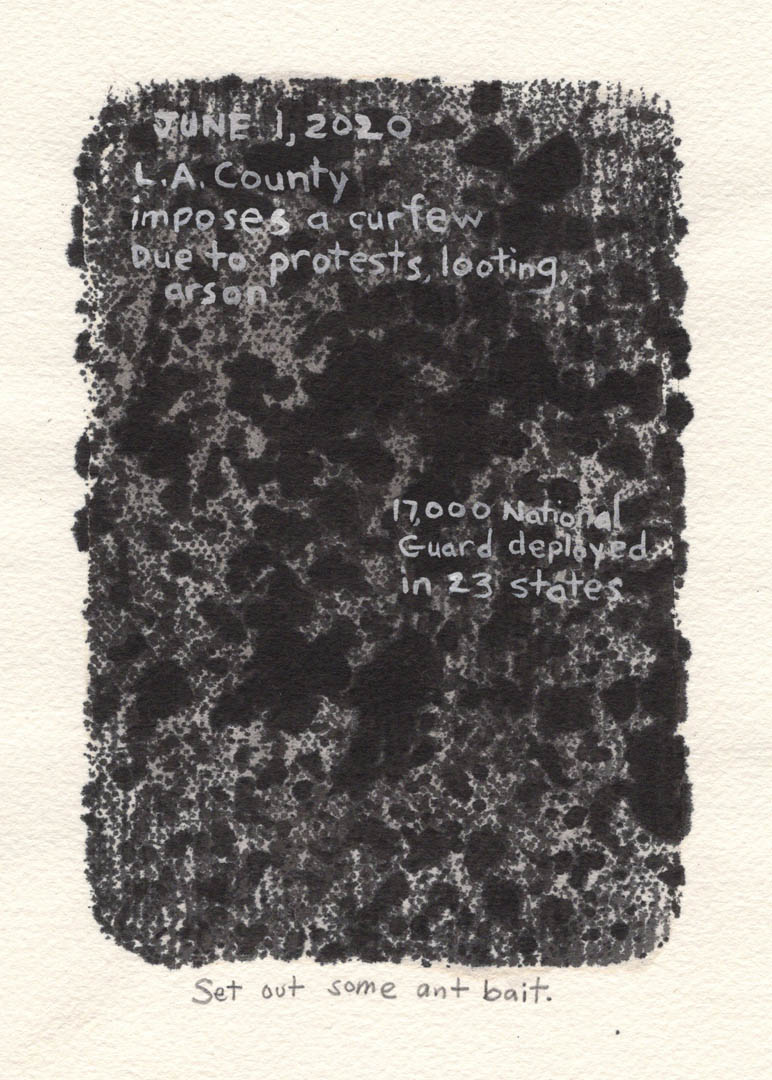 JUNE 1, 2020
L.A. County
imposes a curfew
Due to protests, looting,
arson
17,000 National
Guard deployed
in 23 states
Set out some ant bait.